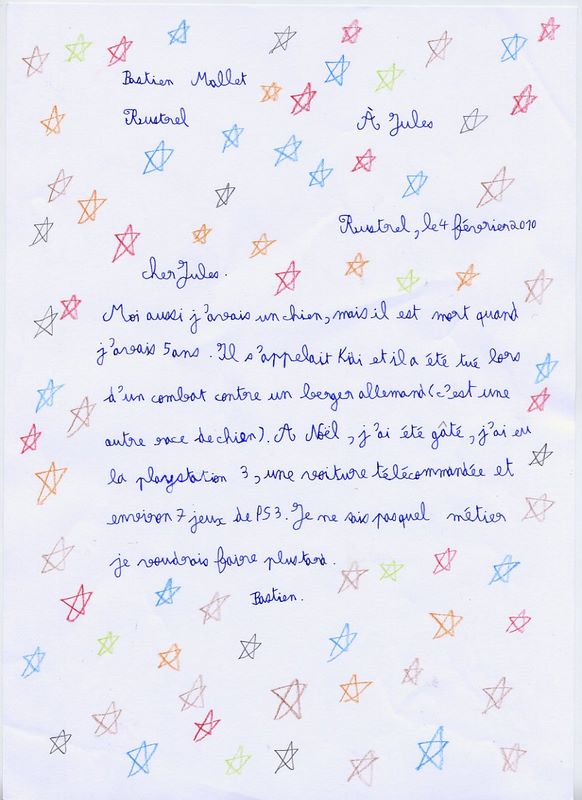 Bastien Mallet
Rustrel
À Jules
Rustrel, le 4 février 2010
cher Jules.
Moi aussi j'avais un chien, mais il est mort quand
j'avais 5 ans. Il s'appelait Kiki et il a été tué lors
d'un combat contre un berger allemand (c'est une
autre race de chien). A Noël, j'ai été gâté, j'ai eu
la playstation 3, une voiture télécommandée et
environ 7 jeux de PS3. Je ne sais pas quel métier
je voudrais faire plus tard.
Bastien.